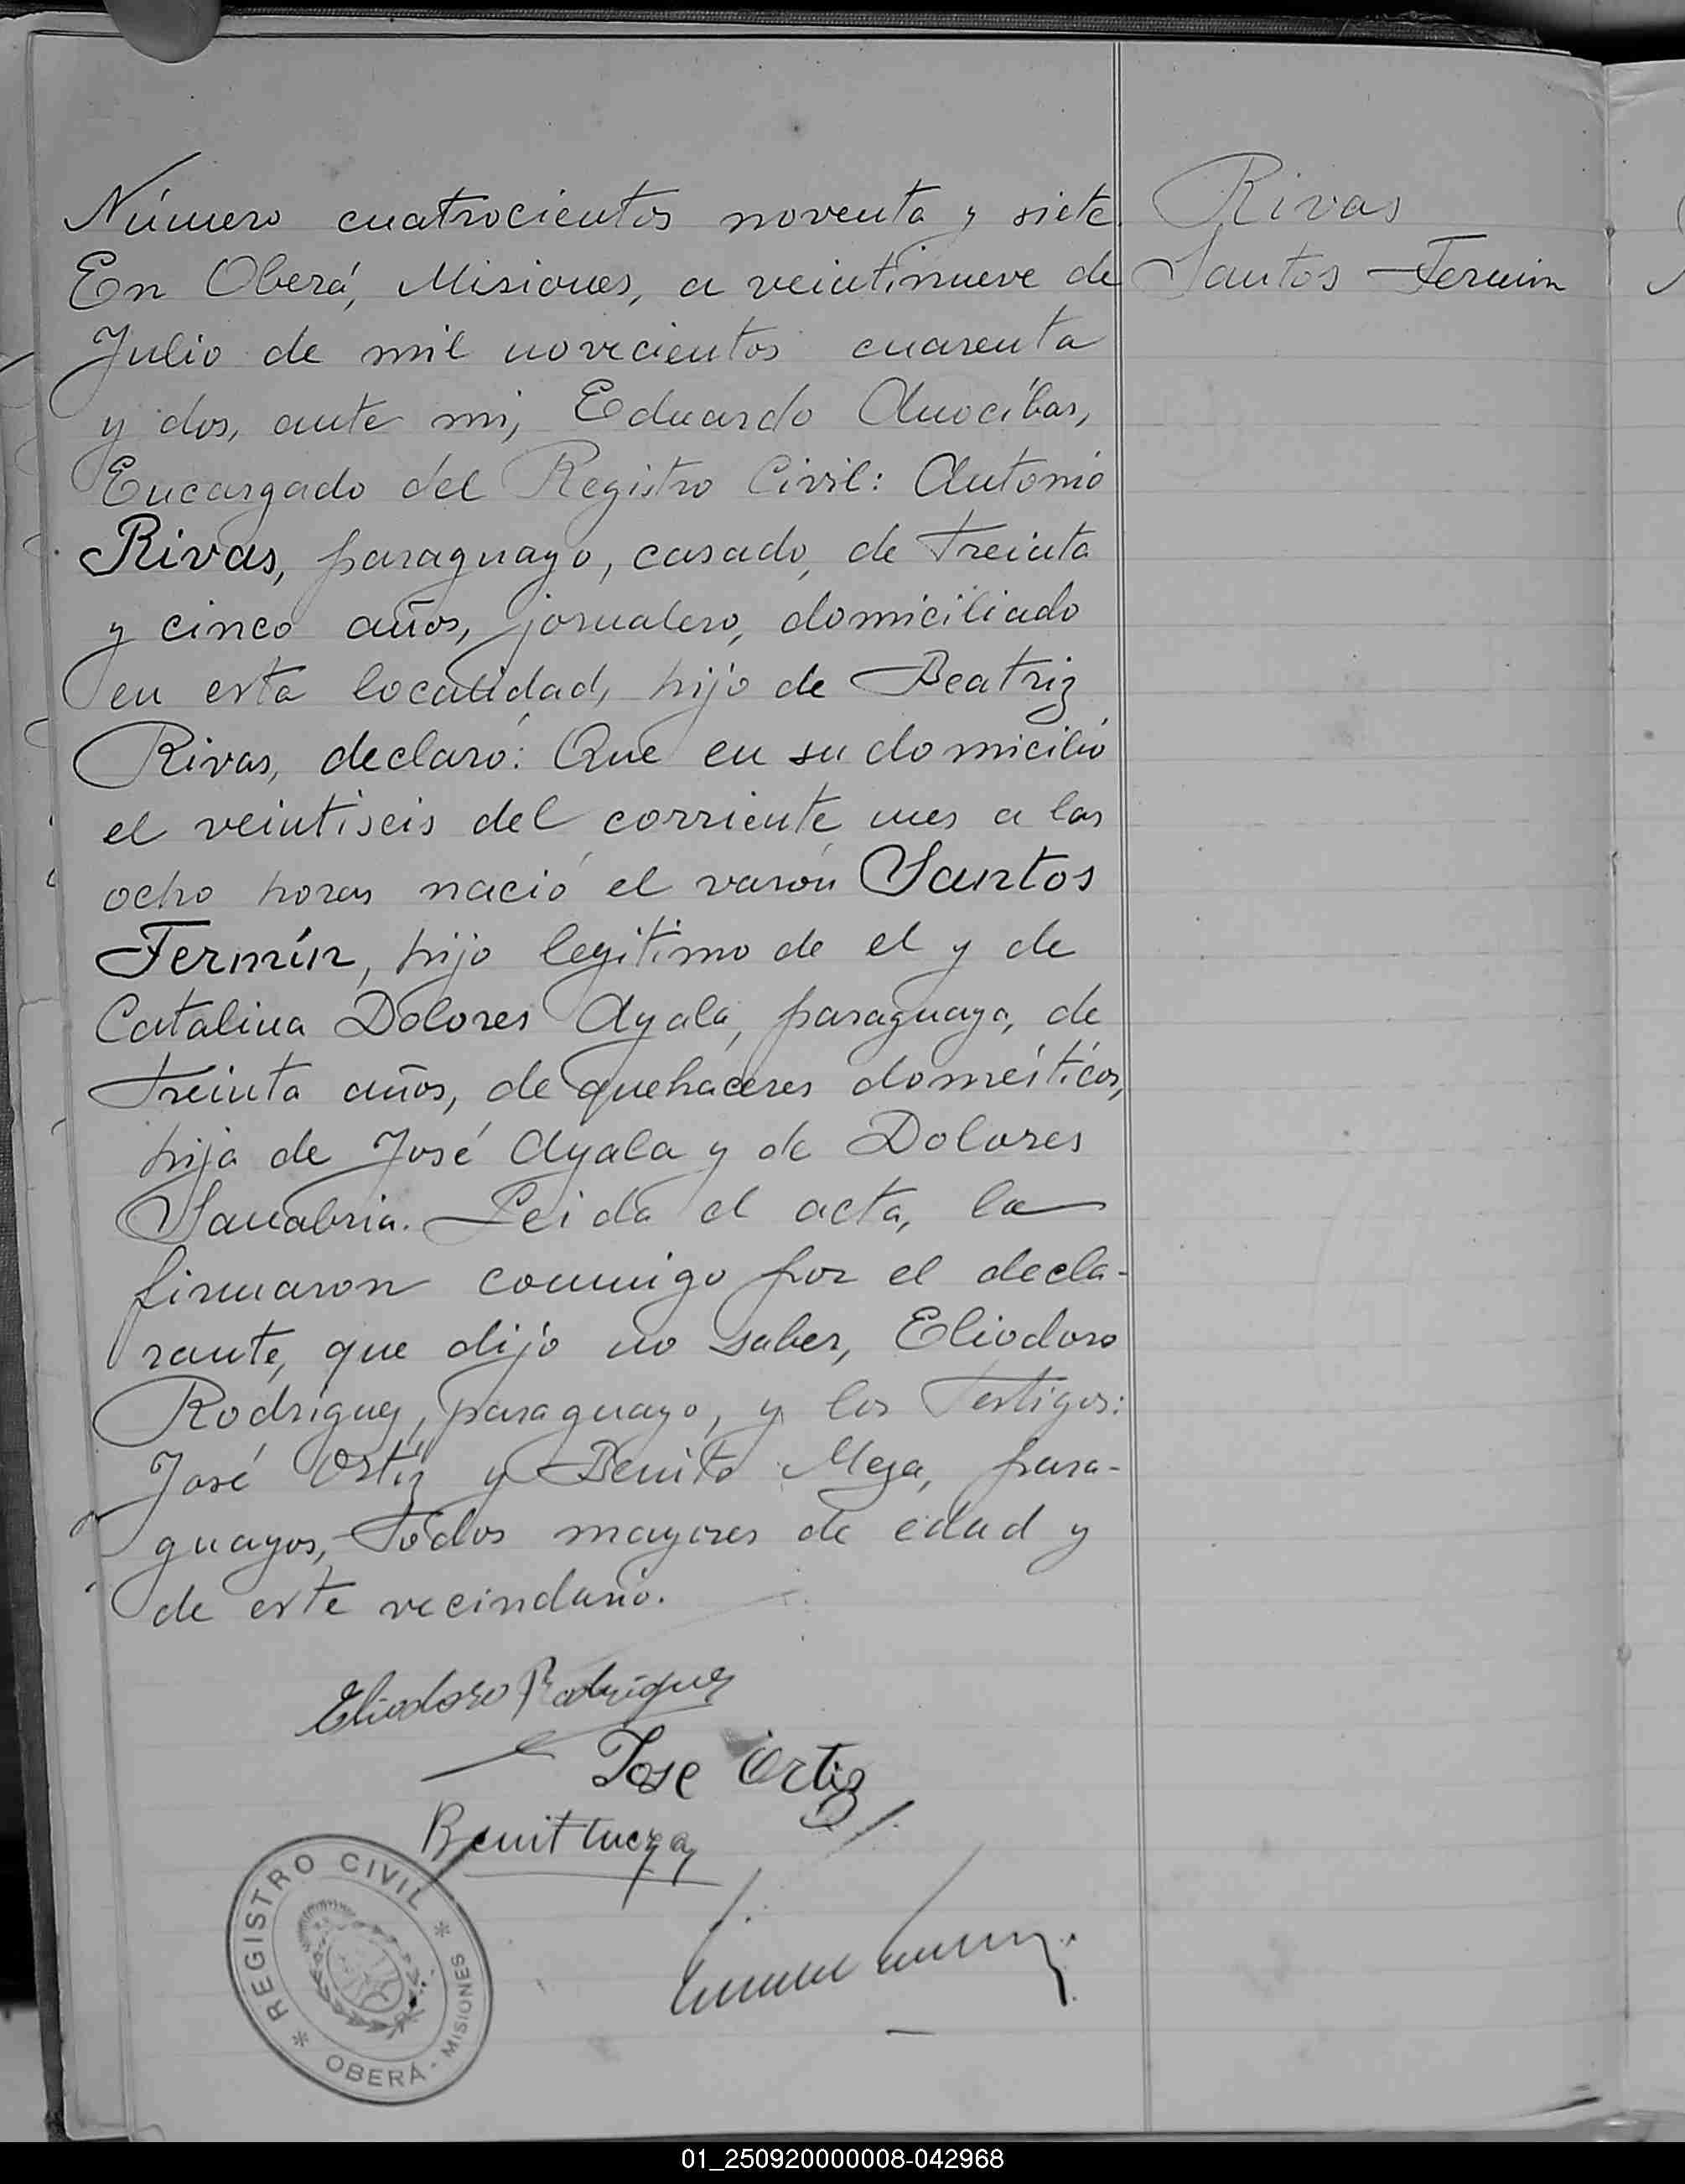 Número cuatrocientos noventa y siete.
En Oberá, Misiones, a veintinueve de
Julio de mil novecientos cuarenta
y dos, ante mi, Eduardo Anocíbar,
Encargado del Registro Civil: Antonio
Rivas, paraguayo, casado, de treinta
y cinco años, jornalero, domiciliado
en esta localidad, hijo de Beatriz
Rivas, declaró: Que en su domicilio
el veintiseis del corriente mes a las
ocho horas nació el varón Santos
Fermín, hijo legitimo de el y de
Catalina Dolores Ayala, paraguaya, de
treinta años, de quehaceres domésticos,
hija de José Ayala y de Dolores
Sanabria. Leida el acta, la
firmaron conmigo por el decla-
rante, que dijo no saber, Eliodoro
Rodríguez, paraguayo, y los testigos:
José Ortíz y Benito Meza, para-
guayos, todos mayores de edad y
de este vecindario.
Rivas
Santos Fermin
Eliodoro Rodriguez
Jose Ortiz
Benit meza
* REGISTRO CIVIL *
OBERÁ - MISIONES
01_250920000008-042968